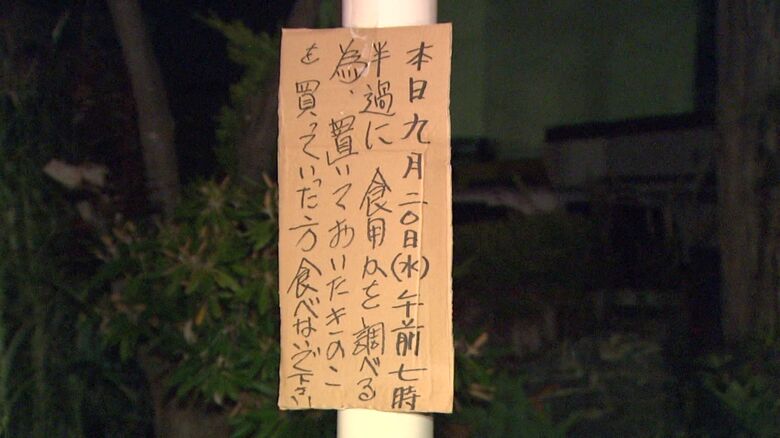 本日九月二〇日(水)午前七時
半過に 食用かを調べる
為、置いておいたきのこ
を買っていった方食べないで下さい